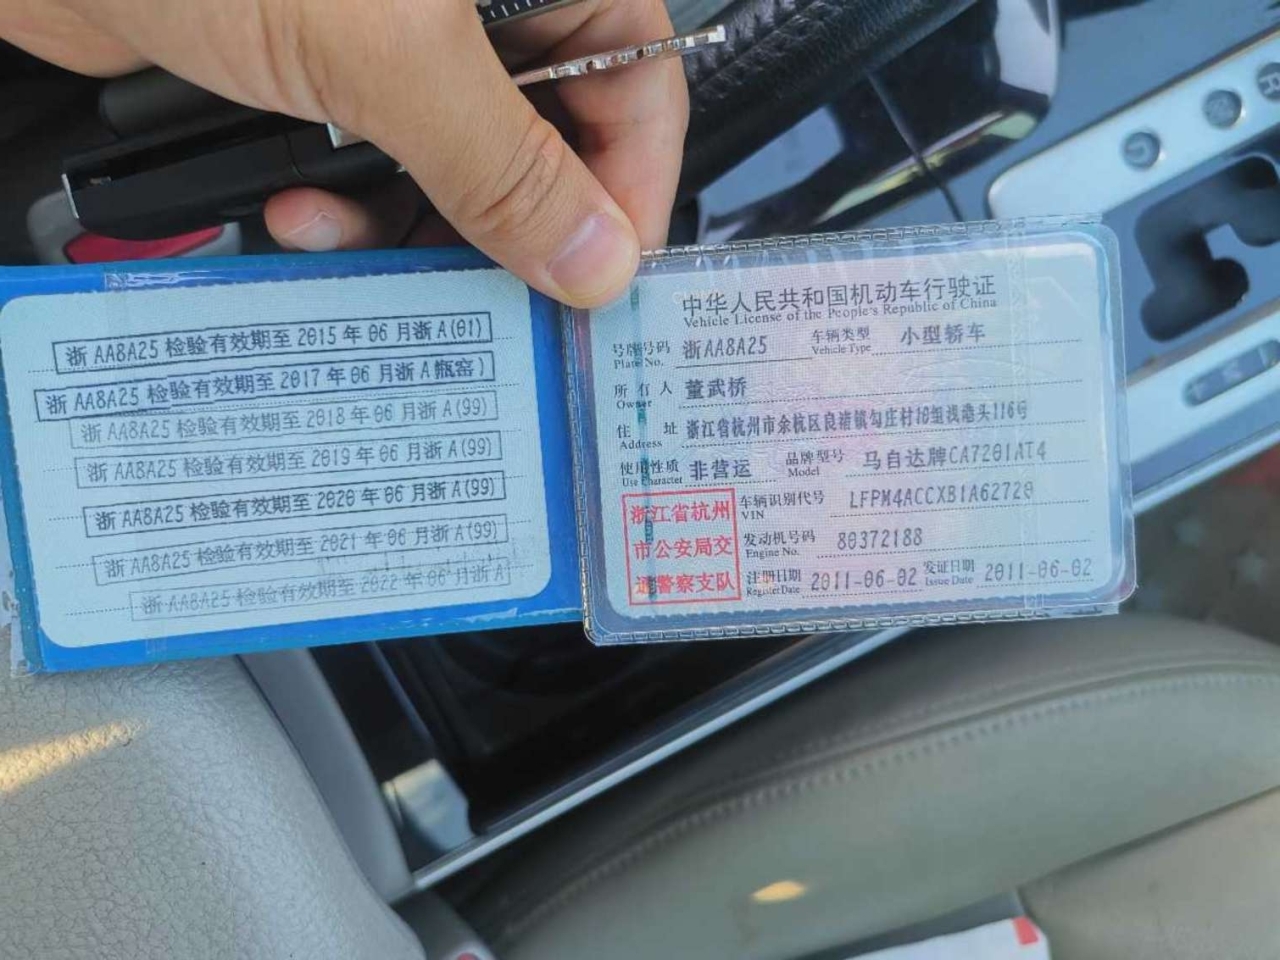 浙 AA8A25 检验有效期至 2015 年 06 月浙 A(01)
浙 AA8A25 检验有效期至 2017 年 06 月浙 A(瓶窑)
浙 AA8A25 检验有效期至 2018 年 06 月浙 A(99)
浙 AA8A25 检验有效期至 2019 年 06 月浙 A(99)
浙 AA8A25 检验有效期至 2020 年 06 月浙 A(99)
浙 AA8A25 检验有效期至 2021 年 06 月浙 A(99)
浙 AA8A25 检验有效期至 2022 年 06 月浙 A
中华人民共和国机动车行驶证
Vehicle License of the People's Republic of China
号牌号码 Plate No. 浙AA8A25 车辆类型 Vehicle Type 小型轿车
所有人 Owner 董武桥
住址 Address 浙江省杭州市余杭区良渚镇勾庄村10组浅港头116号
使用性质 Use Character 非营运 品牌型号 Model 马自达牌CA7201AT4
浙江省杭州
市公安局交
通警察支队
车辆识别代号 VIN LFPM4ACCXB1A62720
发动机号码 Engine No. 80372188
注册日期 Register Date 2011-06-02 发证日期 Issue Date 2011-06-02